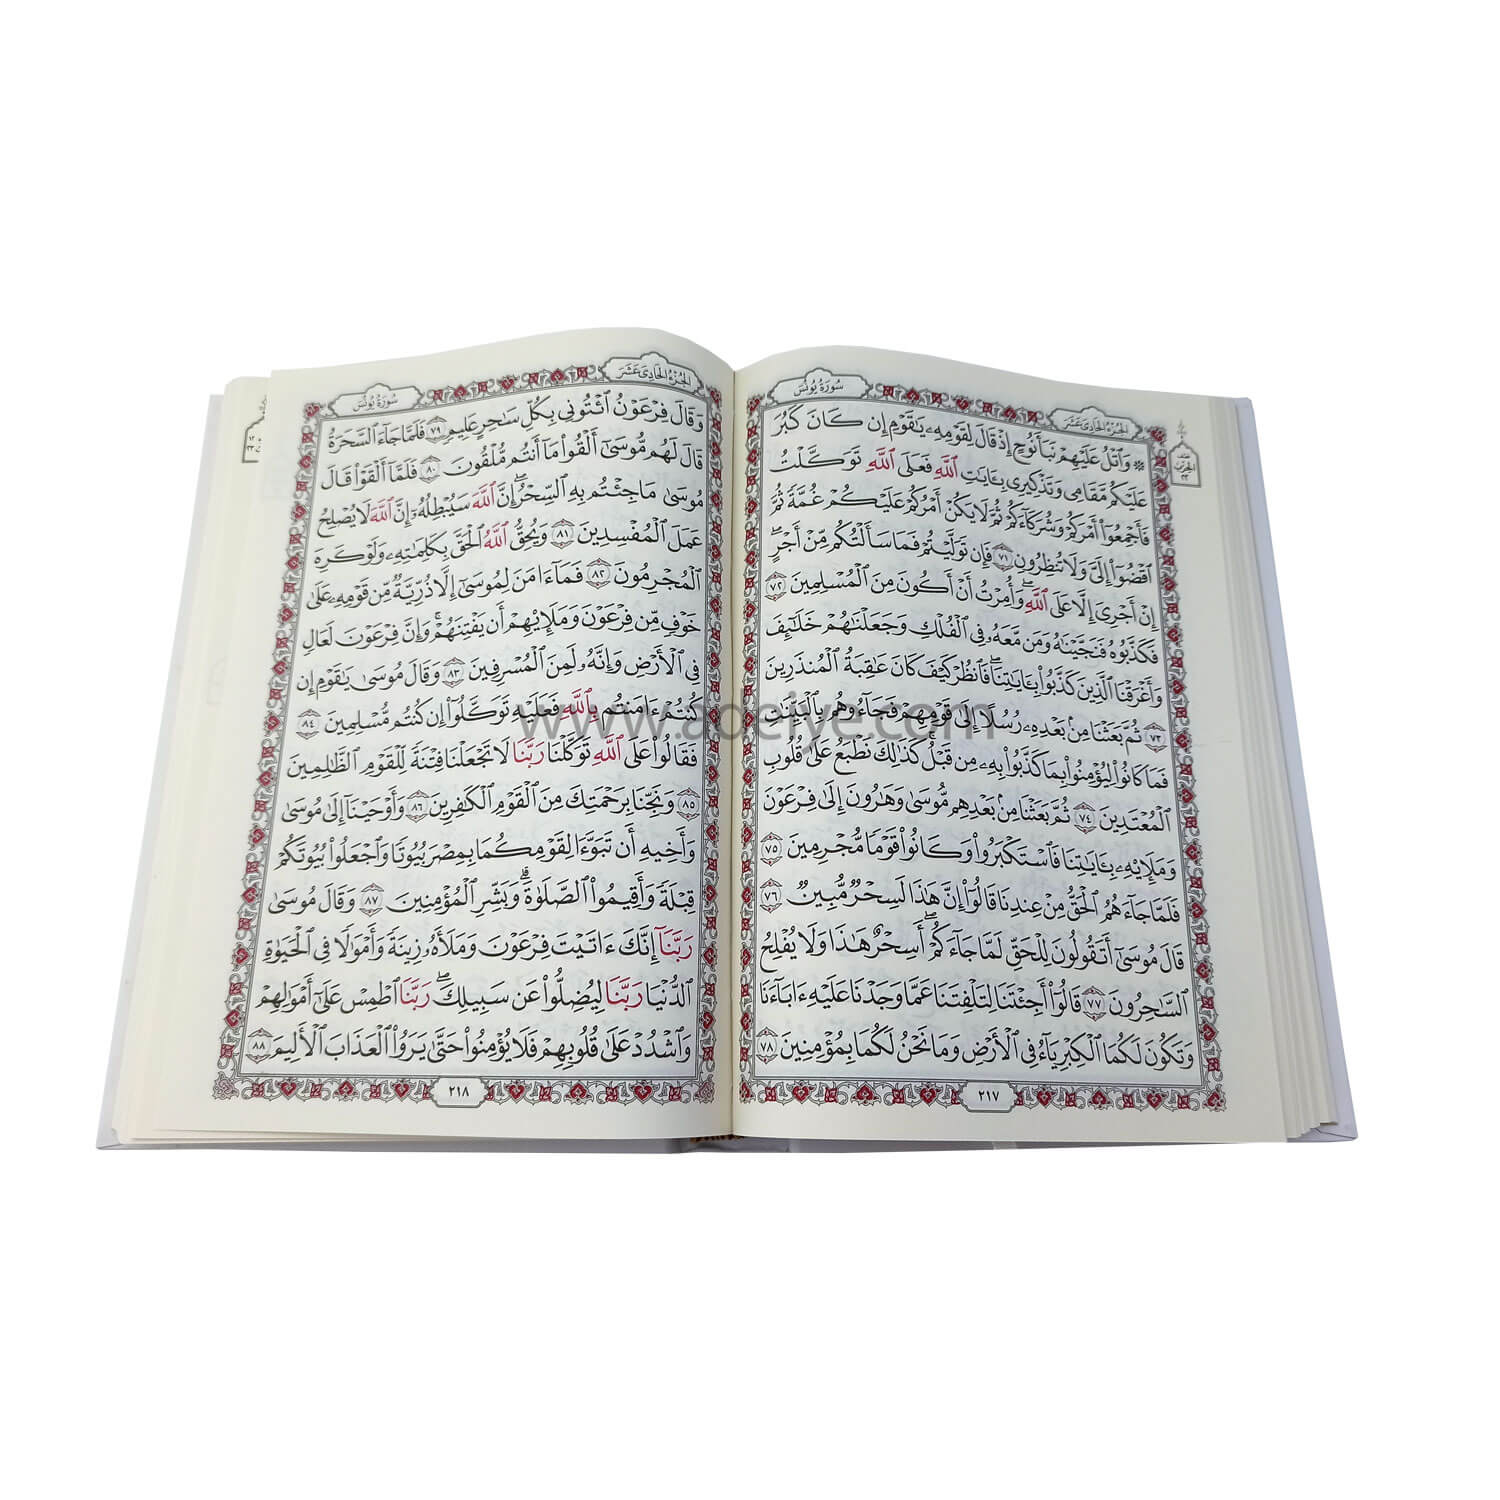 الجزء الحادي عشر
سورة يونس
۞ وَٱتۡلُ عَلَيۡهِمۡ نَبَأَ نُوحٍ إِذۡ قَالَ لِقَوۡمِهِۦ يَٰقَوۡمِ إِن كَانَ كَبُرَ
عَلَيۡكُم مَّقَامِي وَتَذۡكِيرِي بِـَٔايَٰتِ ٱللَّهِ فَعَلَى ٱللَّهِ تَوَكَّلۡتُ
فَأَجۡمِعُوٓاْ أَمۡرَكُمۡ وَشُرَكَآءَكُمۡ ثُمَّ لَا يَكُنۡ أَمۡرُكُمۡ عَلَيۡكُمۡ غُمَّةٗ ثُمَّ
ٱقۡضُوٓاْ إِلَيَّ وَلَا تُنظِرُونِ ٧١ فَإِن تَوَلَّيۡتُمۡ فَمَا سَأَلۡتُكُم مِّنۡ أَجۡرٍۖ
إِنۡ أَجۡرِيَ إِلَّا عَلَى ٱللَّهِۖ وَأُمِرۡتُ أَنۡ أَكُونَ مِنَ ٱلۡمُسۡلِمِينَ ٧٢
فَكَذَّبُوهُ فَنَجَّيۡنَٰهُ وَمَن مَّعَهُۥ فِي ٱلۡفُلۡكِ وَجَعَلۡنَٰهُمۡ خَلَٰٓئِفَ
وَأَغۡرَقۡنَا ٱلَّذِينَ كَذَّبُواْ بِـَٔايَٰتِنَاۖ فَٱنظُرۡ كَيۡفَ كَانَ عَٰقِبَةُ ٱلۡمُنذَرِينَ
٧٣ ثُمَّ بَعَثۡنَا مِنۢ بَعۡدِهِۦ رُسُلًا إِلَىٰ قَوۡمِهِمۡ فَجَآءُوهُم بِٱلۡبَيِّنَٰتِ
فَمَا كَانُواْ لِيُؤۡمِنُواْ بِمَا كَذَّبُواْ بِهِۦ مِن قَبۡلُۚ كَذَٰلِكَ نَطۡبَعُ عَلَىٰ قُلُوبِ
ٱلۡمُعۡتَدِينَ ٧٤ ثُمَّ بَعَثۡنَا مِنۢ بَعۡدِهِم مُّوسَىٰ وَهَٰرُونَ إِلَىٰ فِرۡعَوۡنَ
وَمَلَإِيْهِۦ بِـَٔايَٰتِنَا فَٱسۡتَكۡبَرُواْ وَكَانُواْ قَوۡمٗا مُّجۡرِمِينَ ٧٥
فَلَمَّا جَآءَهُمُ ٱلۡحَقُّ مِنۡ عِندِنَا قَالُوٓاْ إِنَّ هَٰذَا لَسِحۡرٞ مُّبِينٞ ٧٦
قَالَ مُوسَىٰٓ أَتَقُولُونَ لِلۡحَقِّ لَمَّا جَآءَكُمۡۖ أَسِحۡرٌ هَٰذَا وَلَا يُفۡلِحُ
ٱلسَّٰحِرُونَ ٧٧ قَالُوٓاْ أَجِئۡتَنَا لِتَلۡفِتَنَا عَمَّا وَجَدۡنَا عَلَيۡهِ ءَابَآءَنَا
وَتَكُونَ لَكُمَا ٱلۡكِبۡرِيَآءُ فِي ٱلۡأَرۡضِ وَمَا نَحۡنُ لَكُمَا بِمُؤۡمِنِينَ ٧٨
٢١٧
الجزء الحادي عشر
سورة يونس
وَقَالَ فِرۡعَوۡنُ ٱئۡتُونِي بِكُلِّ سَٰحِرٍ عَلِيمٖ ٧٩ فَلَمَّا جَآءَ ٱلسَّحَرَةُ
قَالَ لَهُم مُّوسَىٰٓ أَلۡقُواْ مَآ أَنتُم مُّلۡقُونَ ٨٠ فَلَمَّآ أَلۡقَوۡاْ قَالَ
مُوسَىٰ مَا جِئۡتُم بِهِ ٱلسِّحۡرُۖ إِنَّ ٱللَّهَ سَيُبۡطِلُهُۥٓ إِنَّ ٱللَّهَ لَا يُصۡلِحُ
عَمَلَ ٱلۡمُفۡسِدِينَ ٨١ وَيُحِقُّ ٱللَّهُ ٱلۡحَقَّ بِكَلِمَٰتِهِۦ وَلَوۡ كَرِهَ
ٱلۡمُجۡرِمُونَ ٨٢ فَمَآ ءَامَنَ لِمُوسَىٰٓ إِلَّا ذُرِّيَّةٞ مِّن قَوۡمِهِۦ عَلَىٰ
خَوۡفٖ مِّن فِرۡعَوۡنَ وَمَلَإِيْهِمۡ أَن يَفۡتِنَهُمۡۚ وَإِنَّ فِرۡعَوۡنَ لَعَالٖ
فِي ٱلۡأَرۡضِ وَإِنَّهُۥ لَمِنَ ٱلۡمُسۡرِفِينَ ٨٣ وَقَالَ مُوسَىٰ يَٰقَوۡمِ إِن
كُنتُمۡ ءَامَنتُم بِٱللَّهِ فَعَلَيۡهِ تَوَكَّلُوٓاْ إِن كُنتُم مُّسۡلِمِينَ ٨٤
فَقَالُواْ عَلَى ٱللَّهِ تَوَكَّلۡنَا رَبَّنَا لَا تَجۡعَلۡنَا فِتۡنَةٗ لِّلۡقَوۡمِ ٱلظَّٰلِمِينَ
٨٥ وَنَجِّنَا بِرَحۡمَتِكَ مِنَ ٱلۡقَوۡمِ ٱلۡكَٰفِرِينَ ٨٦ وَأَوۡحَيۡنَآ إِلَىٰ مُوسَىٰ
وَأَخِيهِ أَن تَبَوَّءَا لِقَوۡمِكُمَا بِمِصۡرَ بُيُوتٗا وَٱجۡعَلُواْ بُيُوتَكُمۡ
قِبۡلَةٗ وَأَقِيمُواْ ٱلصَّلَوٰةَۗ وَبَشِّرِ ٱلۡمُؤۡمِنِينَ ٨٧ وَقَالَ مُوسَىٰ
رَبَّنَآ إِنَّكَ ءَاتَيۡتَ فِرۡعَوۡنَ وَمَلَأَهُۥ زِينَةٗ وَأَمۡوَٰلٗا فِي ٱلۡحَيَوٰةِ
ٱلدُّنۡيَا رَبَّنَا لِيُضِلُّواْ عَن سَبِيلِكَۖ رَبَّنَا ٱطۡمِسۡ عَلَىٰٓ أَمۡوَٰلِهِمۡ
وَٱشۡدُدۡ عَلَىٰ قُلُوبِهِمۡ فَلَا يُؤۡمِنُواْ حَتَّىٰ يَرَوُاْ ٱلۡعَذَابَ ٱلۡأَلِيمَ ٨٨
٢١٨
www.adeiye.com